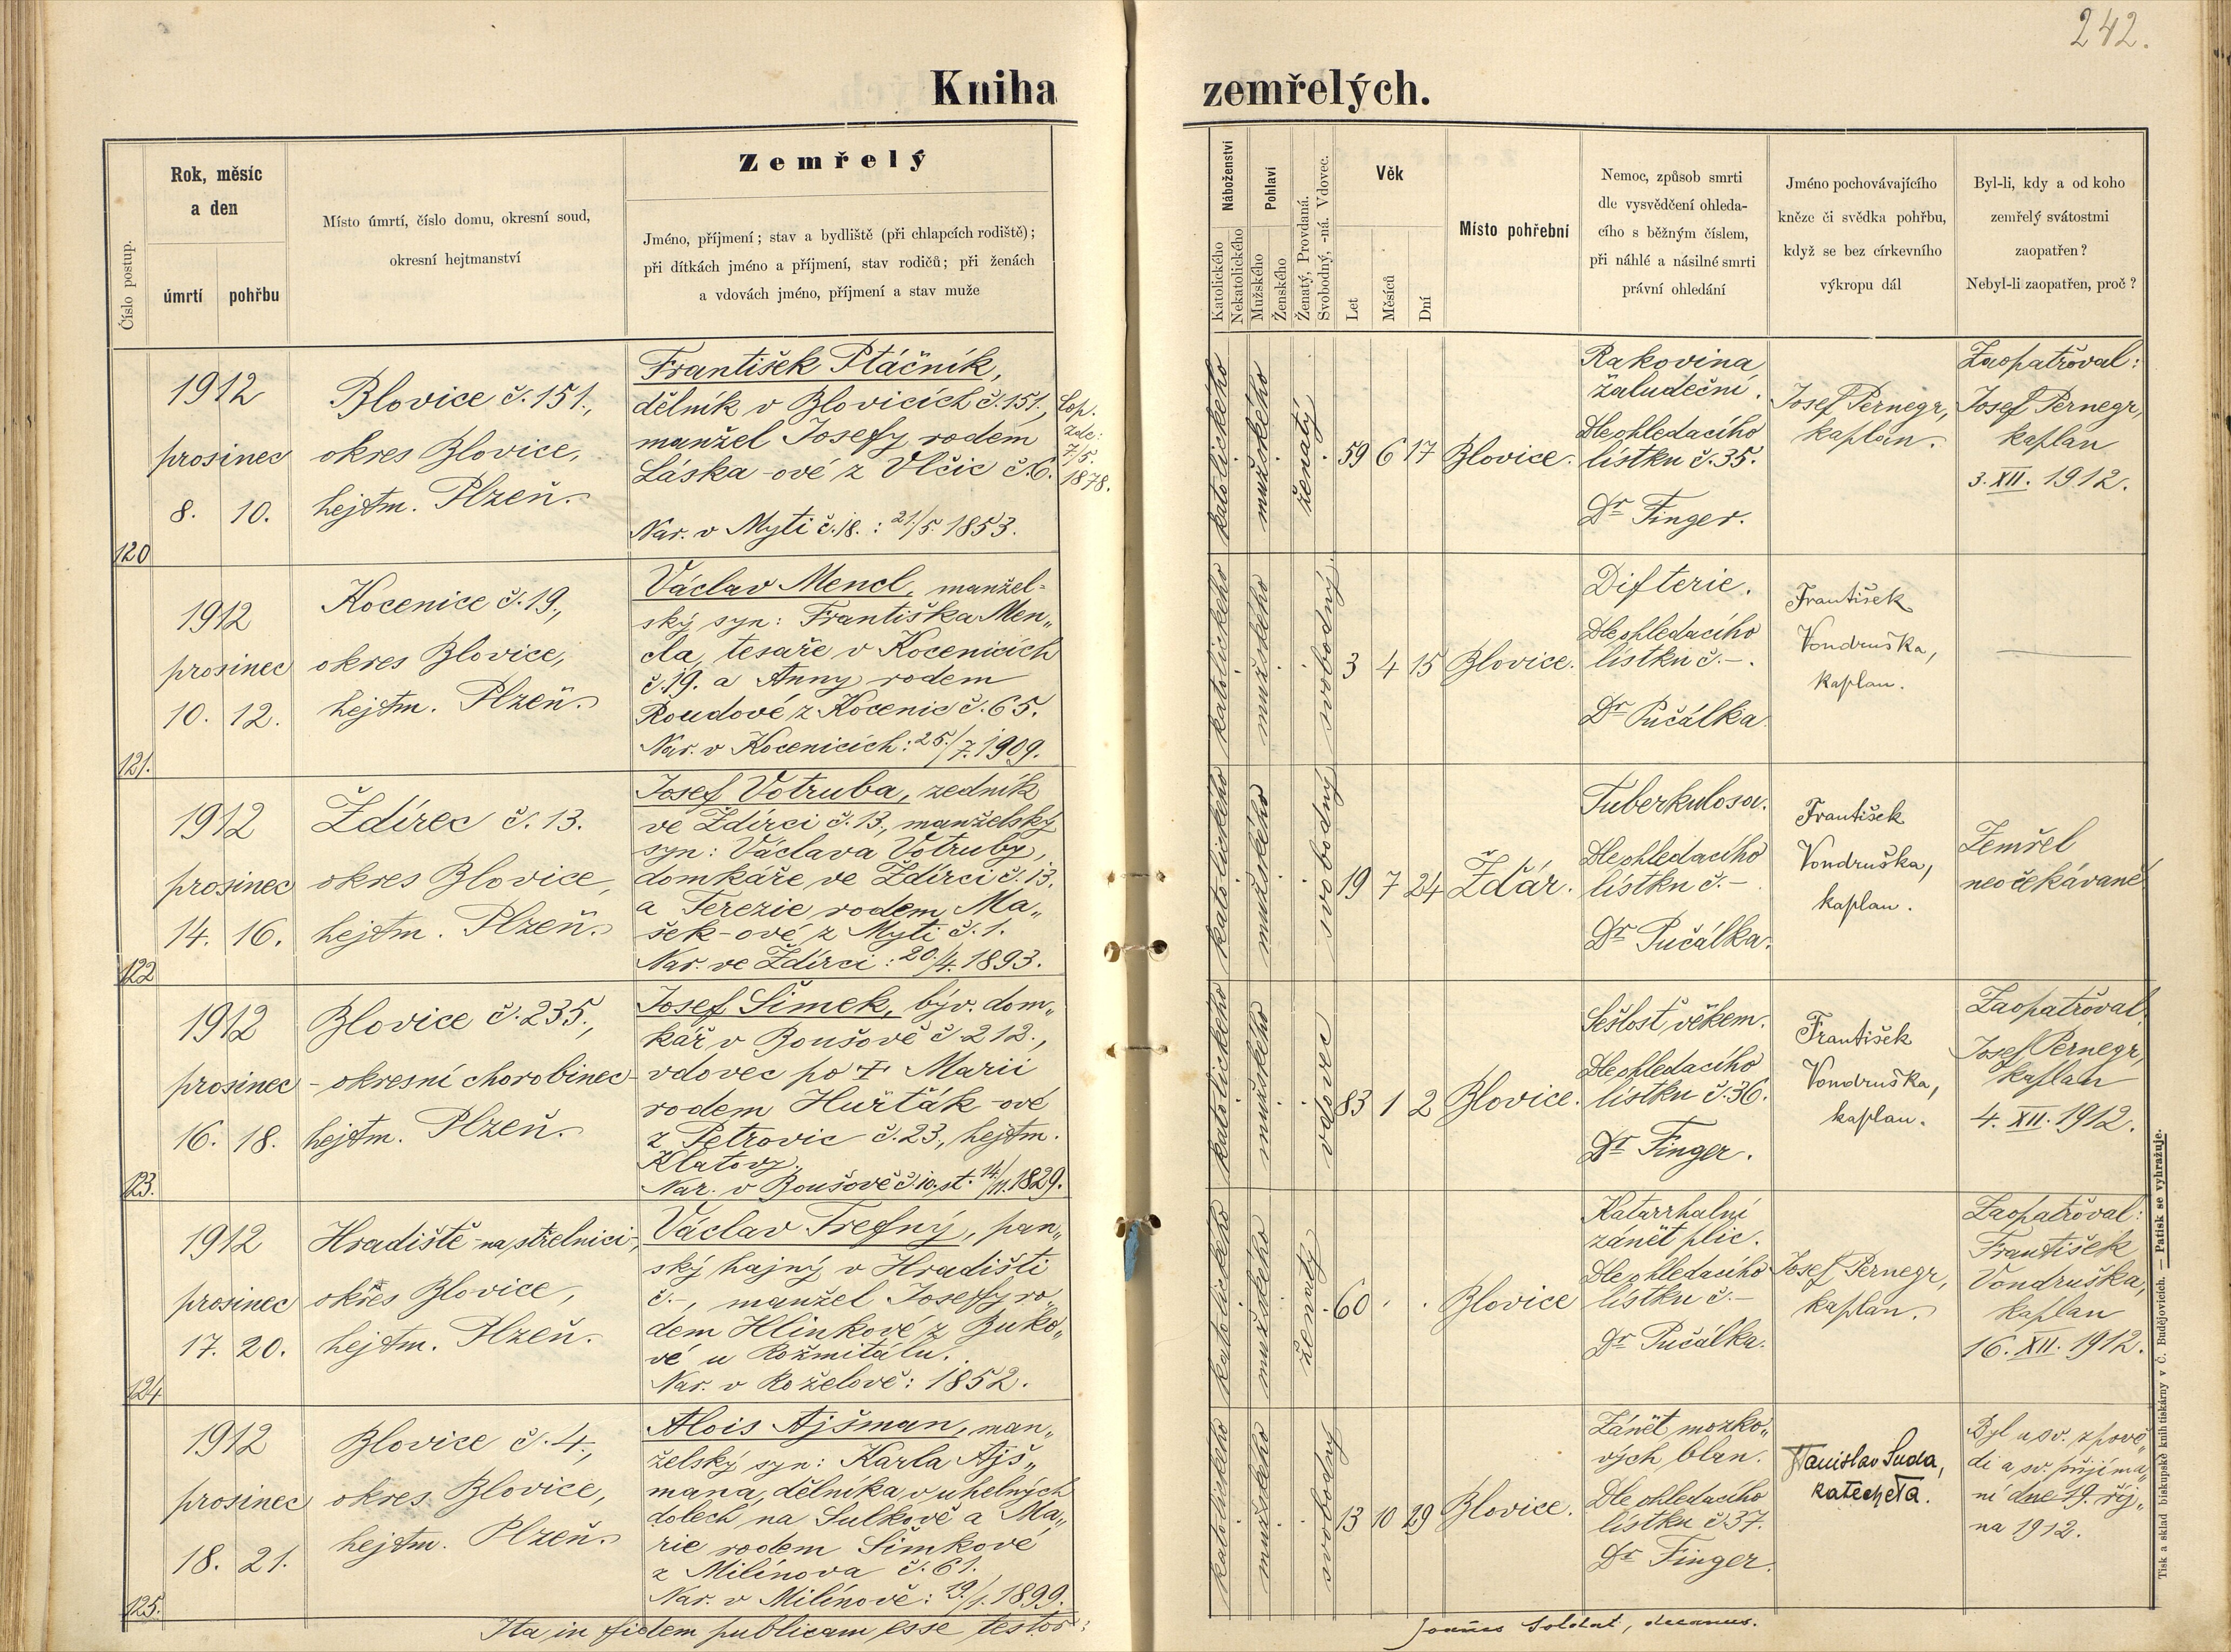 242.
Kniha zemřelých.
Číslo postup.
Rok, měsíc
a den
úmrtí
pohřbu
Místo úmrtí, číslo domu, okresní soud,
okresní hejtmanství
Zemřelý
Jméno, příjmení; stav a bydliště (při chlapcích rodiště);
při dítkách jméno a příjmení, stav rodičů; při ženách
a vdovách jméno, příjmení a stav muže
Náboženství
Katolického
Nekatolického
Pohlaví
Mužského
Ženského
Ženatý, Provdaná.
Svobodný, -ná. Vdovec.
Věk
Let
Měsíců
Dní
Místo pohřební
Nemoc, způsob smrti
dle vysvědčení ohleda-
cího s běžným číslem,
při náhlé a násilné smrti
právní ohledání
Jméno pochovávajícího
kněze či svědka pohřbu,
když se bez církevního
výkropu dál
Byl-li, kdy a od koho
zemřelý svátostmi
zaopatřen?
Nebyl-li zaopatřen, proč?
120
1912
prosinec
8. 10.
Blovice č. 151.,
okres Blovice,
hejtm. Plzeň.
František Ptáčník,
dělník v Blovicích č. 151.,
manžel Josefy rodem
Láska-ové z Vlčic č. 6.
Cop.
zde:
7/5.
1878.
Nar. v Mytí č. 18. : 21./5. 1853.
katolického
mužského
ženatý
59 6 17
Blovice.
Rakovina
žaludeční.
Dle ohledacího
lístku č. 35.
Dr Finger.
Josef Pernegr,
kaplan.
Zaopatřoval:
Josef Pernegr,
kaplan
3. XII. 1912.
121.
1912
prosinec
10. 12.
Kocenice č. 19.,
okres Blovice,
hejtm. Plzeň.
Václav Mencl, manžel-
ský syn: Františka Men„
cla, tesaře v Kocenicích
č. 19. a Anny rodem
Roudové z Kocenic č. 65.
Nar. v Kocenicích: 25./7. 1909.
katolického
mužského
svobodný
3 4 15
Blovice.
Difterie.
Dle ohledacího
lístku č. -.
Dr Pučálka.
František
Vondruška,
kaplan.
122
1912
prosinec
14. 16.
Ždírec č. 13.
okres Blovice,
hejtm. Plzeň.
Josef Votruba, zedník
ve Ždírci č. 13., manželský
syn: Václava Votruby,
domkáře ve Ždírci č. 13.
a Terezie rodem Ma„
šek-ové z Mytí č. 1.
Nar. ve Ždírci: 20./4. 1893.
katolického
mužského
svobodný
19 7 24
Žďár.
Tuberkulosa.
Dle ohledacího
lístku č. -
Dr Pučálka.
František
Vondruška,
kaplan.
Zemřel
neočekávaně
123.
1912
prosinec
16. 18.
Blovice č. 235.,
- okresní chorobinec -
hejtm. Plzeň.
Josef Šimek, býv. dom„
kář v Boušově č. 212.,
vdovec po † Marii
rodem Huřťák-ové
z Petrovic č. 23., hejtm.
Klatovy.
Nar. v Boušově č. 10. st. 14/11. 1829.
katolického
mužského
vdovec
83 1 2
Blovice.
Sešlost věkem.
Dle ohledacího
lístku č. 36.
Dr Finger.
František
Vondruška,
kaplan.
Zaopatřoval
Josef Pernegr,
kaplan
4. XII. 1912.
124
1912
prosinec
17. 20.
Hradiště - na střelnici -,
okres Blovice,
hejtm. Plzeň.
Václav Trefný, pan„
ský hajný v Hradišti
č. -, manžel Josefy ro„
dem Hlinkové z Buko„
vé u Rožmitálu.
Nar. v Roželově: 1852.
katolického
mužského
ženatý
60 . .
Blovice
Katarrhalní
zánět plic.
Dle ohledacího
lístku č. -
Dr Pučálka.
Josef Pernegr,
kaplan.
Zaopatřoval:
František
Vondruška,
kaplan
16. XII. 1912.
125.
1912
prosinec
18. 21.
Blovice č. 4.,
okres Blovice,
hejtm. Plzeň.
Alois Ajšman, man„
želský syn: Karla Ajš„
mana, dělníka v uhelných
dolech na Sulkově a Ma„
rie rodem Šimkové
z Milínova č. 61.
Nar. v Milínově: 19./1. 1899.
katolického
mužského
svobodný
13 10 29
Blovice.
Zánět mozko„
vých blan.
Dle ohledacího
lístku č. 37.
Dr Finger.
Stanislav Suda,
katecheta.
Byl u sv. zpově„
di a sv. přijímá„
ní dne 19. říj„
na 1912.
Ita in fidem publicam esse testor:
Joannes Soldat, decanus.
Tisk a sklad biskupské knihtiskárny v Č. Budějovicích. — Patisk se vyhražuje.